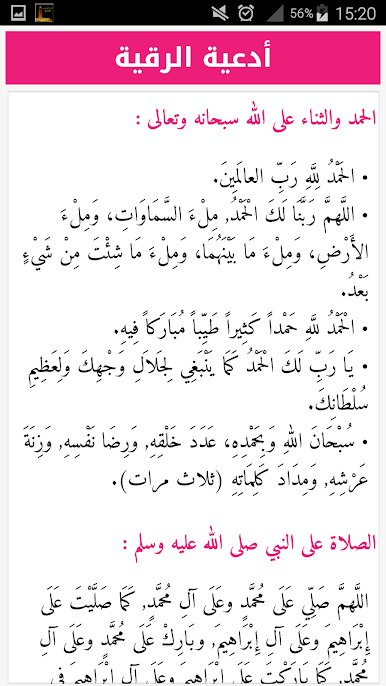 56% 15:20
أدعية الرقية
الحمد والثناء على الله سبحانه وتعالى :
• الحَمْدُ لِلَّهِ رَبِّ العالَمِينَ.
• اللَّهمَّ رَبَّنَا لَكَ الحَمْدُ, مِلْءَ السَّمَاوَاتِ، وَمِلْءَ
الأَرْضِ، وَمِلْءَ مَا بَيْنَهُمَا، وَمِلْءَ مَا شِئْتَ مِنْ شَيْءٍ
بَعْدُ.
• الحَمْدُ لِلَّهِ حَمْداً كَثِيراً طَيِّباً مُبَارَكاً فِيهِ.
• يَا رَبِّ لَكَ الحَمْدُ كَمَا يَنْبَغِي لِجَلَالِ وَجْهِكَ وَلِعَظِيمِ
سُلْطَانِكَ.
• سُبْحَانَ اللهِ وَبِحَمْدِهِ، عَدَدَ خَلْقِهِ, وَرِضَا نَفْسِهِ, وَزِنَةَ
عَرْشِهِ, وَمِدَادَ كَلِمَاتِهِ (ثلاث مرات).
الصلاة على النبي صلى الله عليه وسلم :
اللَّهمَّ صَلِّي عَلَى مُحَمَّدٍ وعَلَى آلِ مُحَمَّدٍ, كَمَا صَلَّيْتَ عَلَى
إِبْرَاهِيمَ وعَلَى آلِ إِبْرَاهِيمَ, وبارِكْ عَلَى مُحَمَّدٍ وعَلَى آلِ
مُحَمَّدٍ, كَمَا بَارَكْتَ عَلَى إِبْرَاهِيمَ وعَلَى آلِ إِبْرَاهِيمَ في